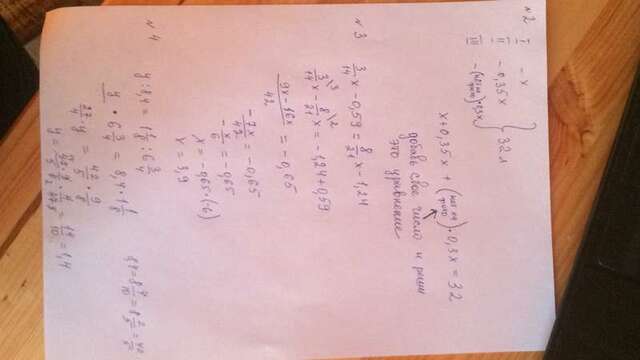 №2
I - x
II - 0,35x
III - 0,3x } 32 л
x + 0,35x + ( ) · 0,3x = 32
добавь свое число и реши
это уравнение
№3
3/14 x - 0,59 = 8/21 x - 1,24
3/14 \3 x - 8/21 \2 x = -1,24 + 0,59
9x - 16x / 42 = -0,65
-7x/42 = -0,65
-x/6 = -0,65
x = -0,65 · (-6)
x = 3,9
№4
y : 8,4 = 1 1/8 : 6 3/4
y · 6 3/4 = 8,4 · 1 1/8
27/4 · y = 42/5 · 9/8
= 14/10 = 1,4
8,4 = 8 4/10 = 8 2/5 = 42/5